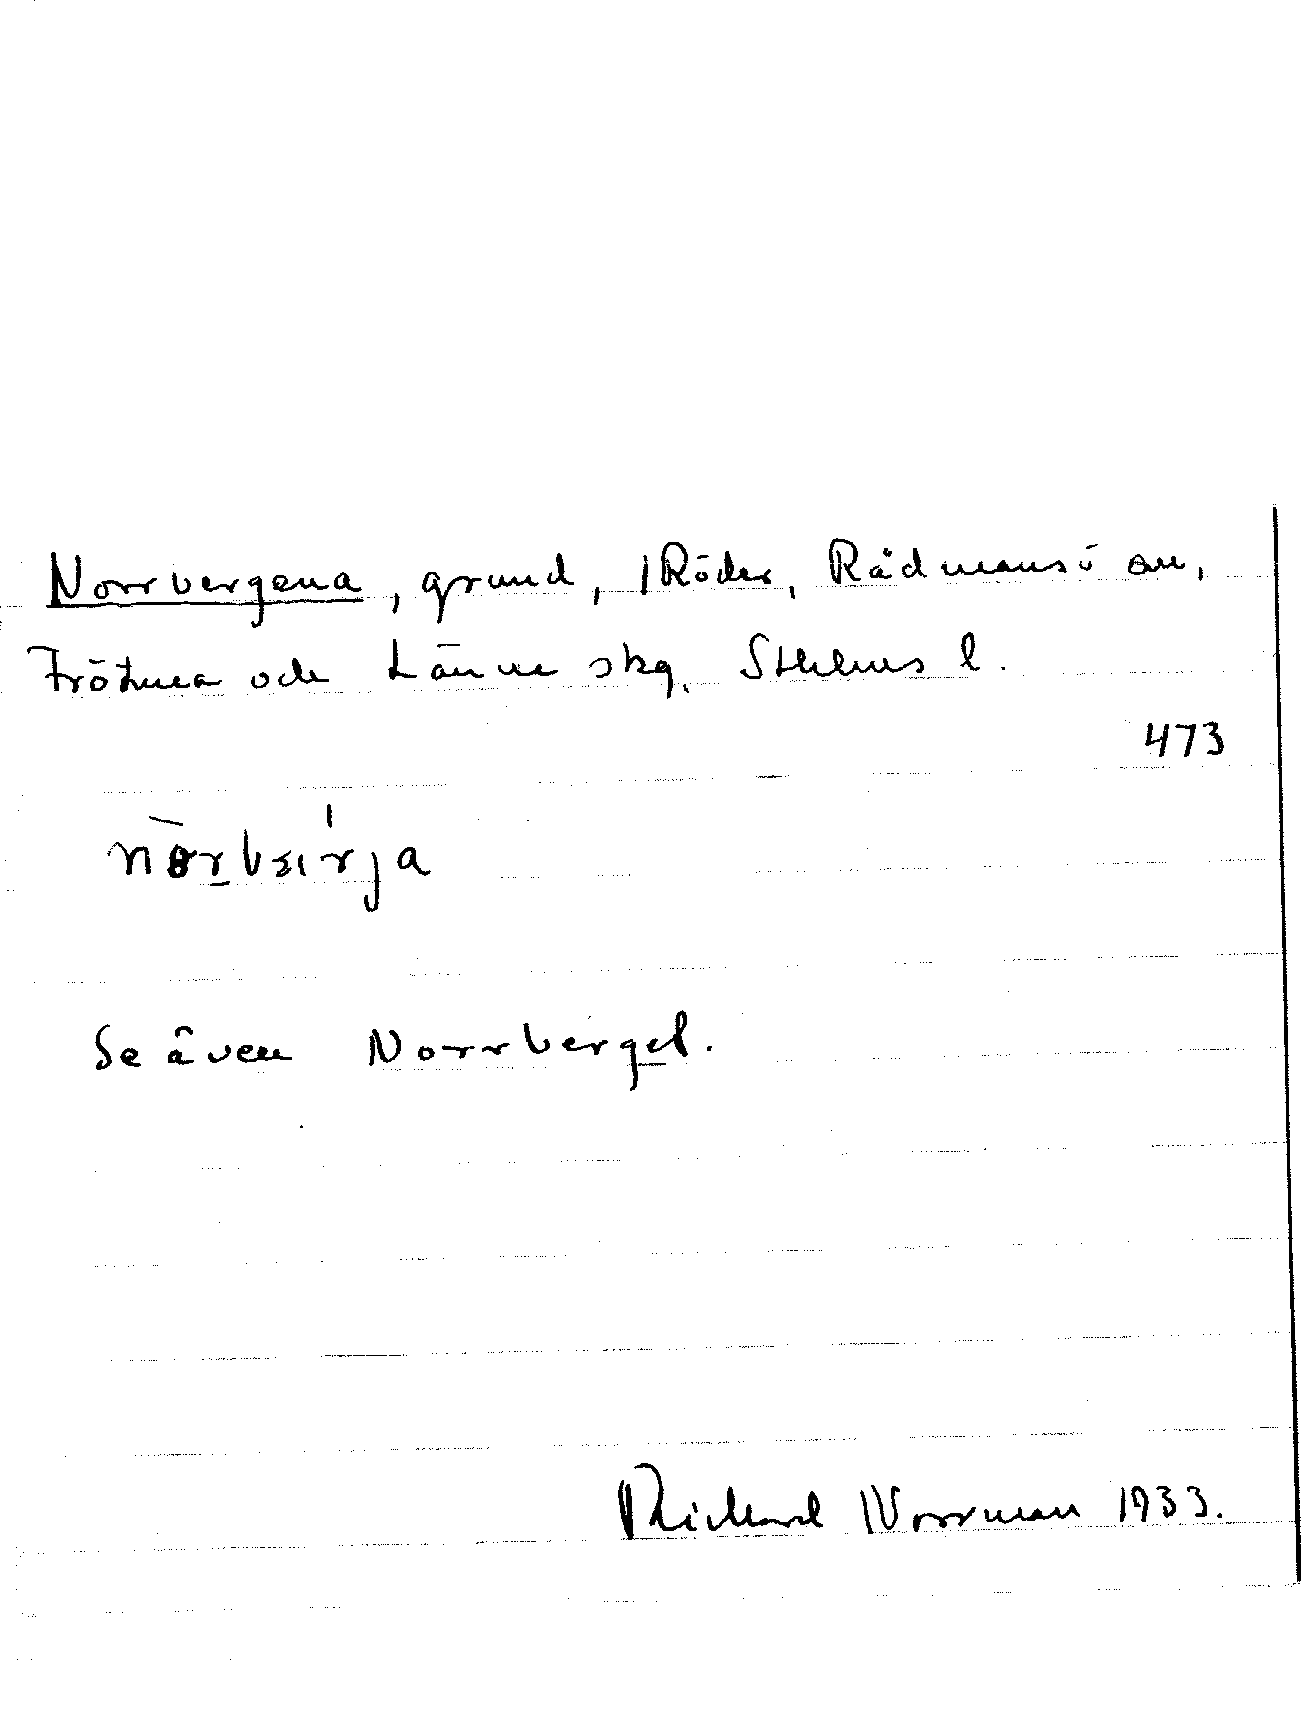 Norrbergena, grund, Röder, Rådmansö sn,
Frötuna och Länna skg, Sthlms l.
473
Se även Norrberget.
Rickard Norrman 1933.